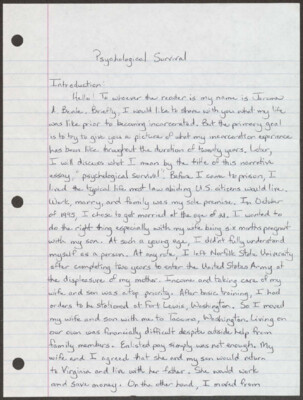 Psychological Survival
Introduction:
Hello! To whoever the reader is my name is
A. Beale. Briefly, I would like to share with you what my life
was like prior to becoming incarcerated. But the primary goal
is to try to give you a picture of what my incarceration experience
has been like throughout the duration of twenty years. Later,
I will discuss what I mean by the title of this narrative
essay, "psychological survival". Before I came to prison, I
lived the typical life most law abiding U.S. citizens would live.
Work, marry, and family was my sole premise. In October
of 1995, I chose to get married at the age of 22. I wanted to
do the right thing especially with my wife being six months pregnant
with my son. At such a young age, I didn't fully understand
myself as a person. At any rate, I left Norfolk State University
after completing two years to enter the United States Army at
the displeasure of my mother. Income and taking care of my
wife and son was a top priority. After basic training, I had
orders to be stationed at Fort Lewis, Washington. So I moved
my wife and son with me to Tacoma, Washington. Living on
our own was financially difficult despite outside help from
family members. Enlisted pay simply was not enough. My
wife and I agreed that she and my son would return
to Virginia and live with her father. She would work
and save money. On the other hand, I moved from